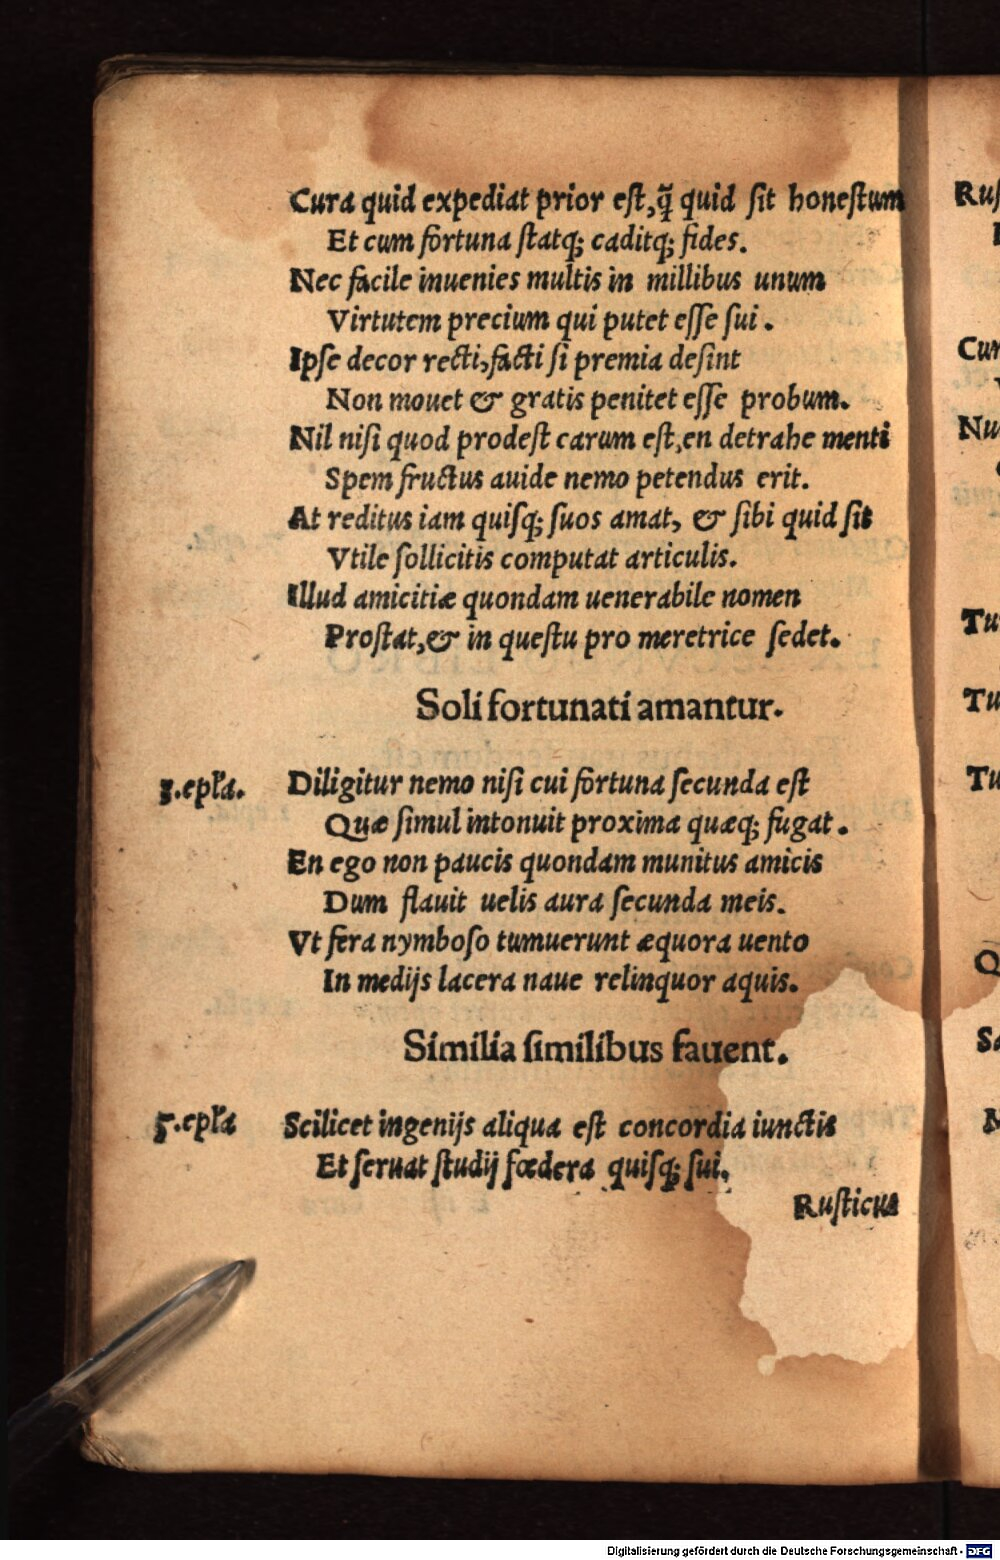 Cura quid expediat prior eſt, q̃ quid ſit honeſtum
Et cum fortuna ſtatq; caditq; fides.
Nec facile inuenies multis in millibus unum
Virtutem precium qui putet eſſe ſui.
Ipſe decor recti, facti ſi premia deſint
Non mouet & gratis penitet eſſe probum.
Nil niſi quod prodeſt carum eſt, en detrahe menti
Spem fructus auide nemo petendus erit.
At reditus iam quiſq; ſuos amat, & ſibi quid ſit
Vtile ſollicitis computat articulis.
Illud amicitiæ quondam uenerabile nomen
Proſtat, & in queſtu pro meretrice ſedet.
Soli fortunati amantur.
3.epľa. Diligitur nemo niſi cui fortuna ſecunda eſt
Quæ ſimul intonuit proxima quæq; fugat.
En ego non paucis quondam munitus amicis
Dum flauit uelis aura ſecunda meis.
Vt fera nymboſo tumuerunt æquora uento
In medijs lacera naue relinquor aquis.
Similia ſimilibus fauent.
5.epľa Scilicet ingenijs aliqua eſt concordia iunctis
Et ſeruat ſtudij fœdera quiſq; ſui.
Ruſticus
Digitalisierung gefördert durch die Deutsche Forschungsgemeinschaft - DFG